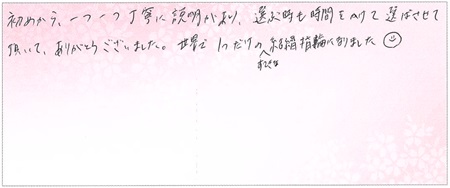 初めから、一つ一つ丁寧に説明があり、選ぶ時も時間をかけて選ばさせて
頂いて、ありがとうございました。世界で1つだけのすてきな結婚指輪になりました